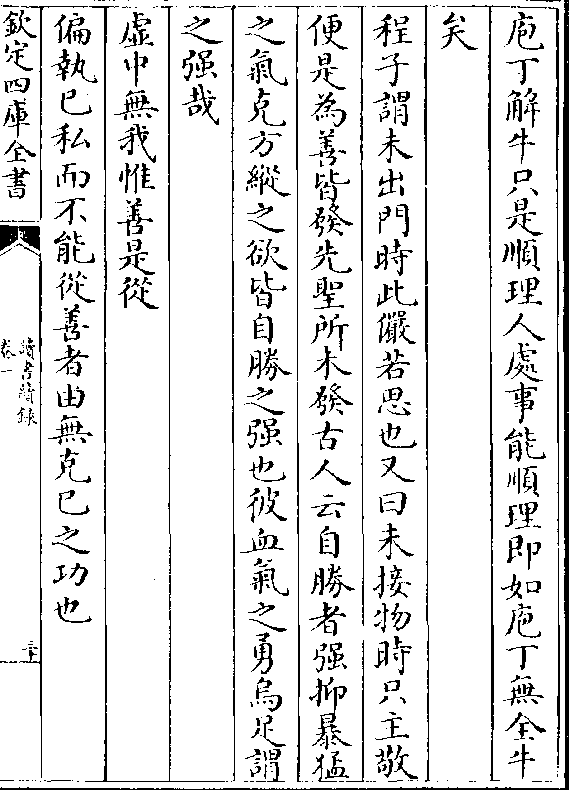 庖丁解牛只是順理人處事能順理即如庖丁無全牛
矣
程子謂未出門時此儼若思也又曰未接物時只主敬
便是為善皆發先聖所未發古人云自勝者强抑暴猛
之氣克方縱之欲皆自勝之强也彼血氣之勇烏足謂
之强哉
虚中無我惟善是從
偏執已私而不能從善者由無克已之功也
欽定四庫全書
讀書續録
卷一